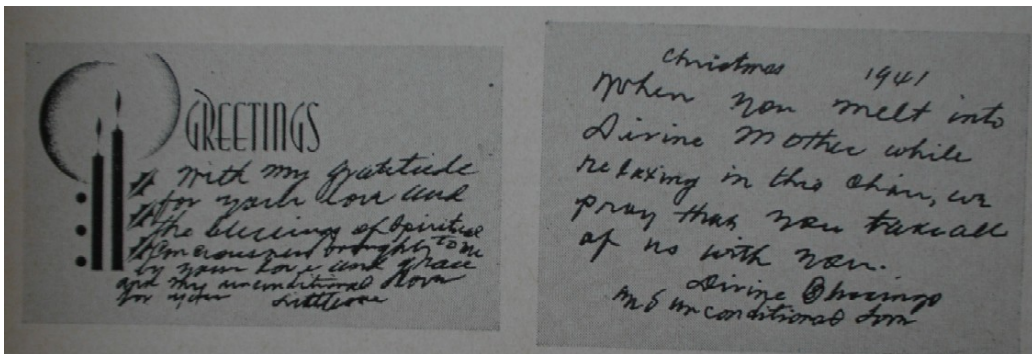 GREETINGS
With my gratitude
for your love and
the blessings of Spiritual
Consciousness brought to me
by your love and grace
and my unconditional love
for you Littleone
Christmas 1941
When you melt into
Divine Mother while
relaxing in this chair, we
pray that you take all
of us with you.
Divine Blessings
and unconditional love